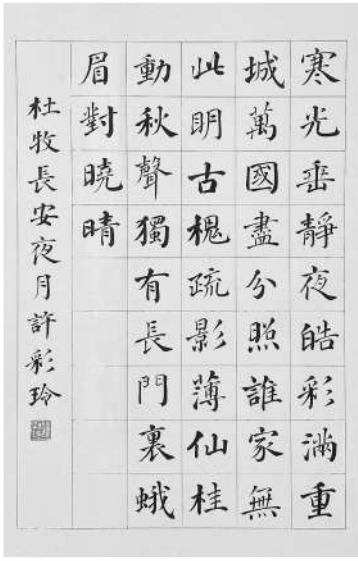 寒光垂靜夜皓彩滿重
城萬國盡分照誰家無
此明古槐疏影薄仙桂
動秋聲獨有長門裏蛾
眉對曉晴
杜牧長安夜月許彩玲